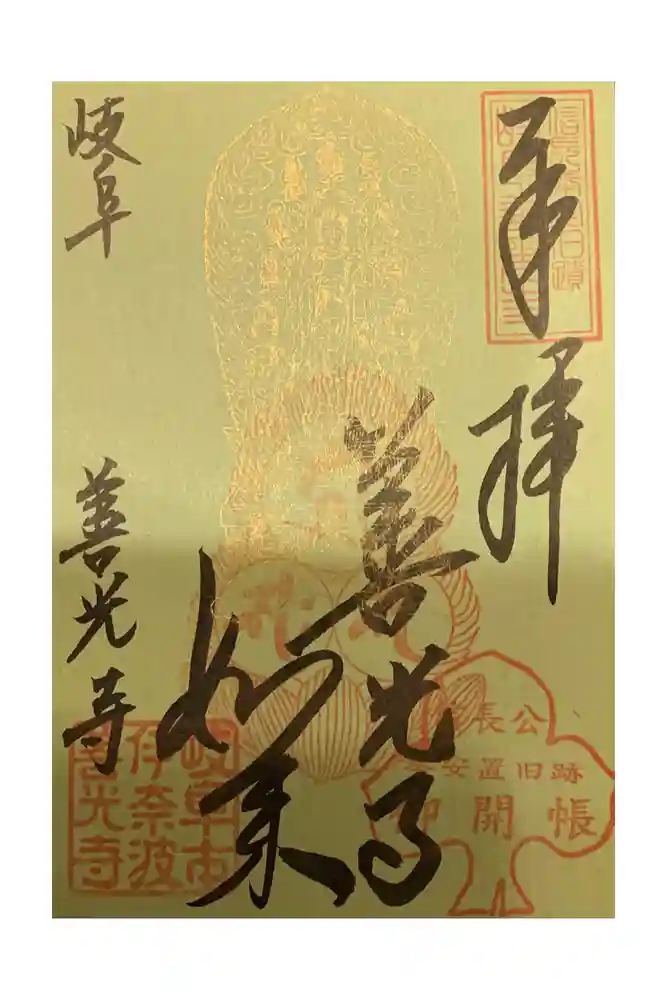 奉拝
善光寺
如来
岐阜
善光寺
長公
安置旧跡
御開帳
岐阜市
伊奈波
善光寺